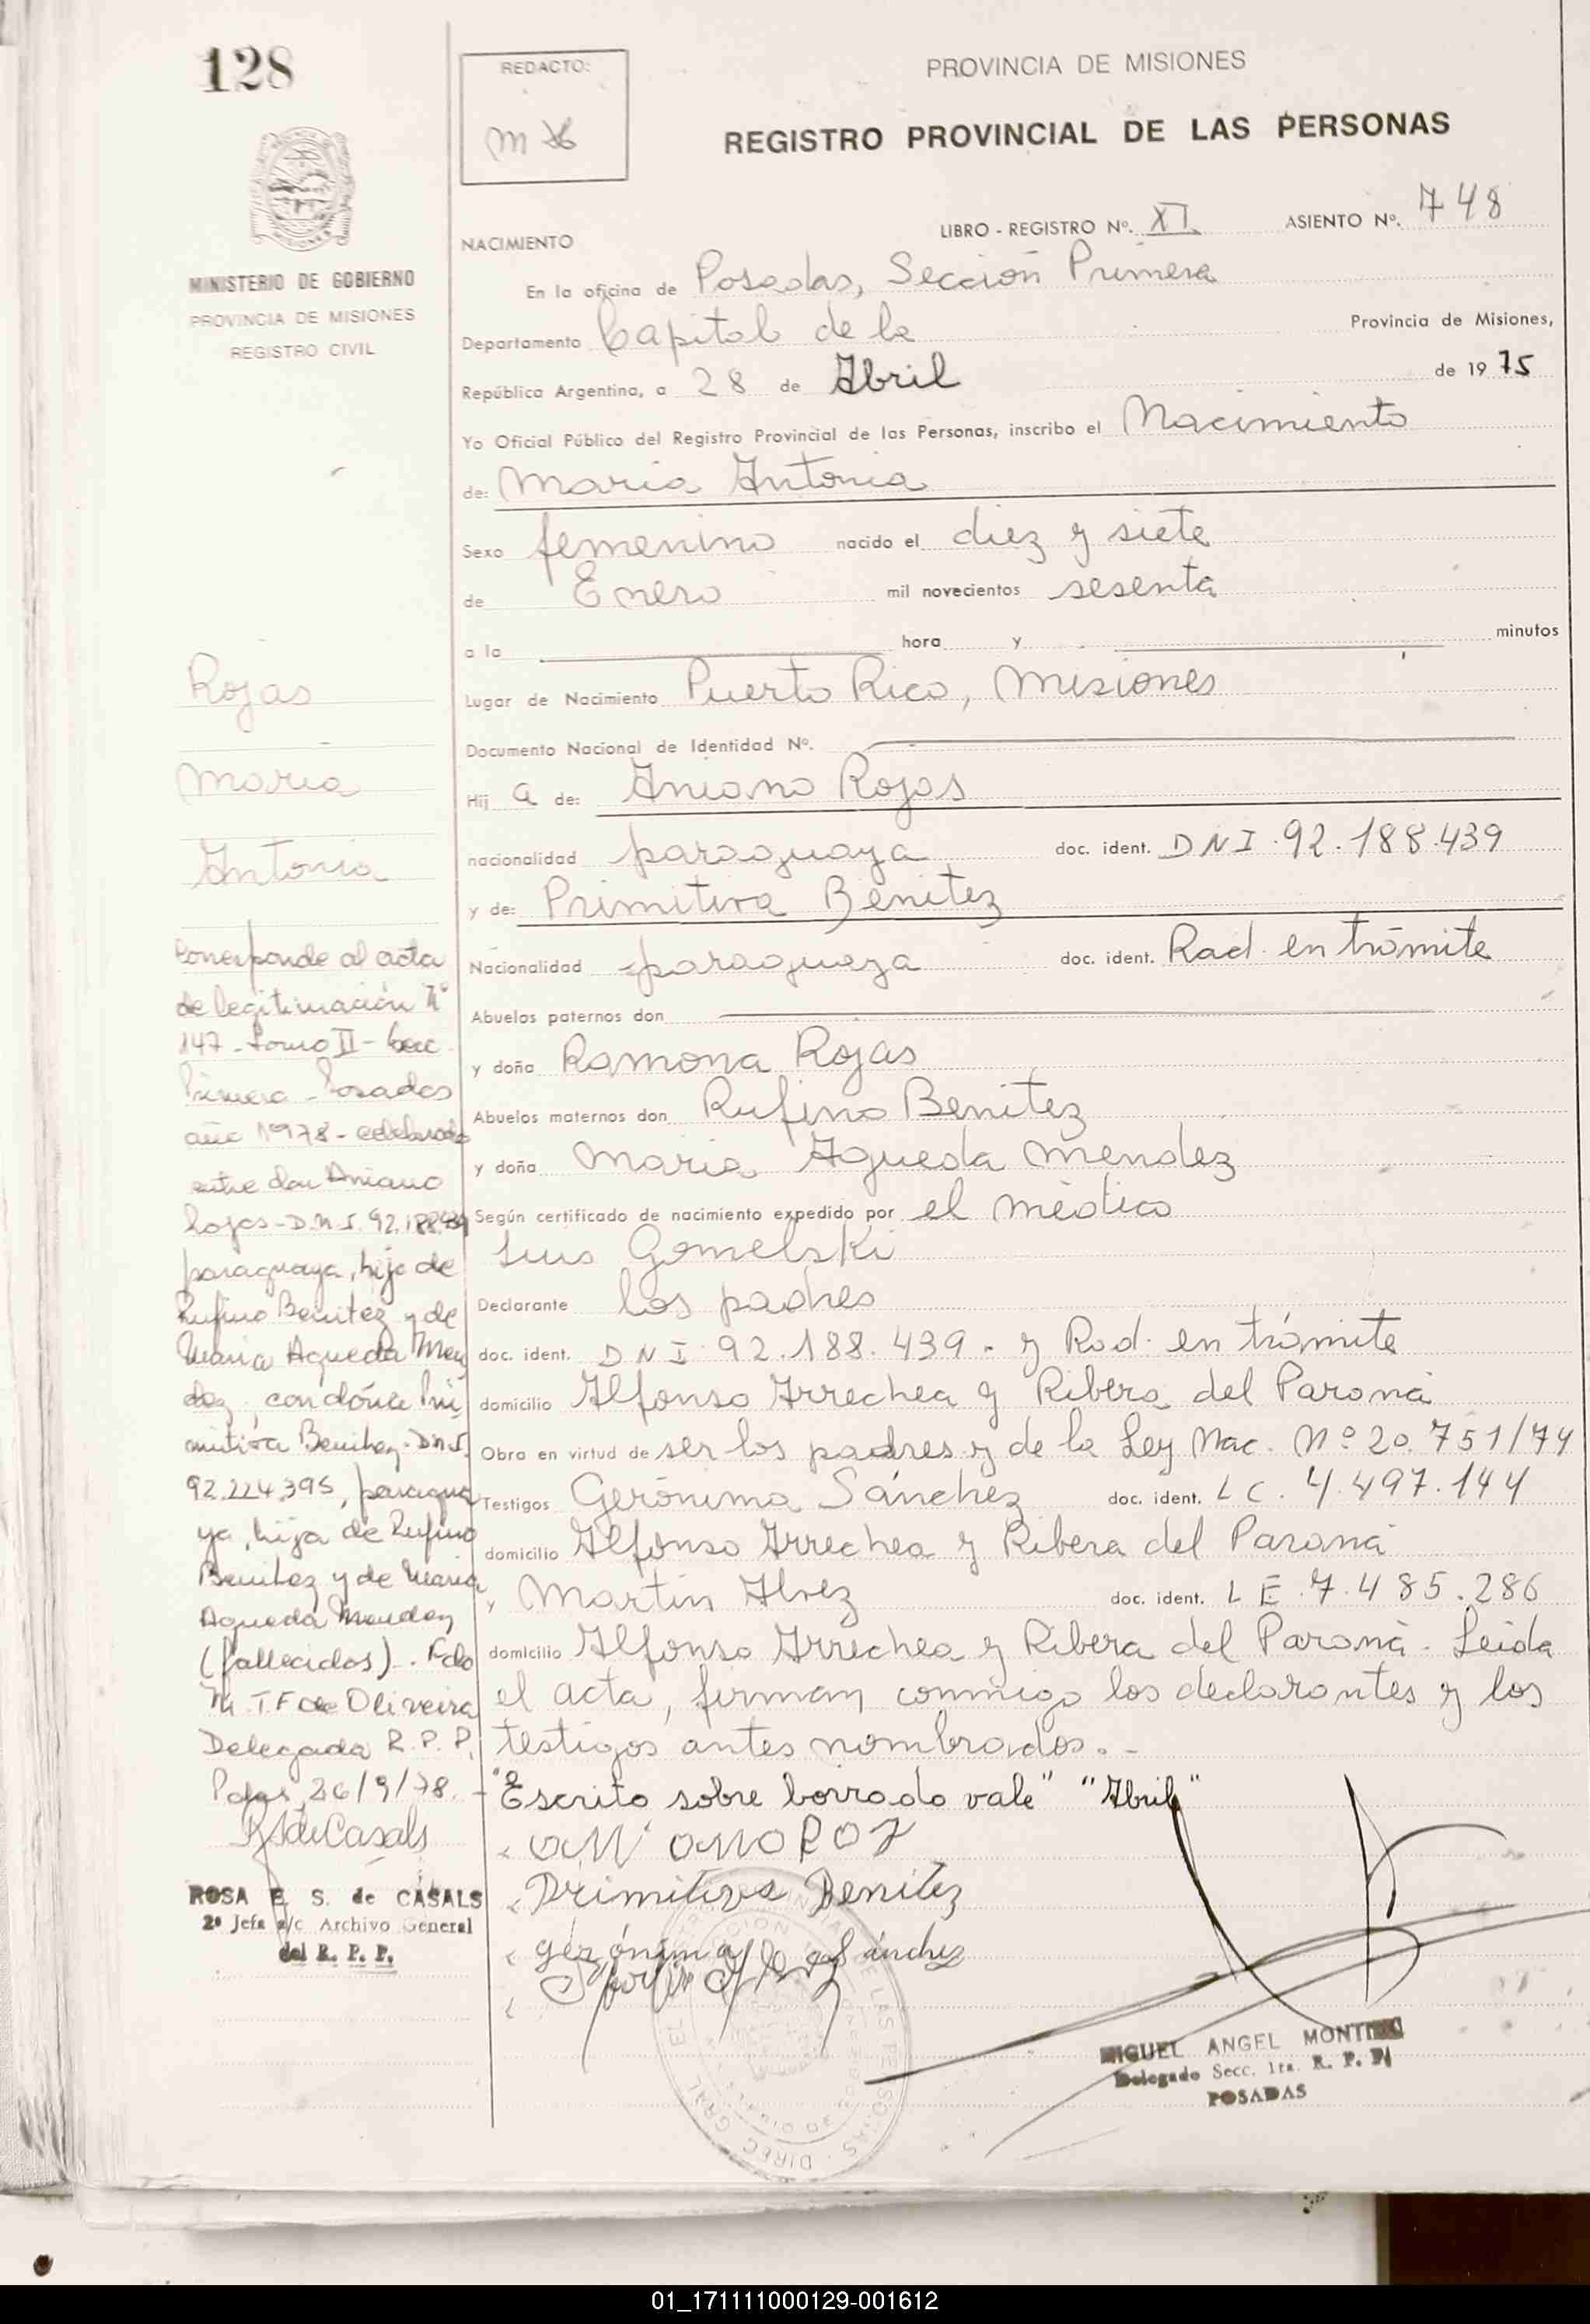 128
REDACTO:
M
PROVINCIA DE MISIONES
REGISTRO PROVINCIAL DE LAS PERSONAS
MINISTERIO DE GOBIERNO
PROVINCIA DE MISIONES
REGISTRO CIVIL
LIBRO - REGISTRO Nº. XI ASIENTO Nº. 748
NACIMIENTO
En la oficina de Posadas, Sección Primera
Departamento Capital de la Provincia de Misiones,
República Argentina, a 28 de Abril de 1975
Yo Oficial Público del Registro Provincial de las Personas, inscribo el Nacimiento
de: Maria Antonia
Sexo femenino nacido el diez y siete
de Enero mil novecientos sesenta
a la hora y minutos
Lugar de Nacimiento Puerto Rico, Misiones
Documento Nacional de Identidad Nº.
Hij a de: Aniano Rojas
nacionalidad paraguaya doc. ident. DNI.92.188.439
y de: Primitiva Benitez
Nacionalidad paraguaya doc. ident. Rad. en trámite
Abuelos paternos don
y doña Ramona Rojas
Abuelos maternos don Rufino Benitez
y doña Maria Agueda Mendez
Según certificado de nacimiento expedido por el médico
Luis Gomelski
Declarante los padres
doc. ident. DNI.92.188.439.- y Rad. en trámite
domicilio Alfonso Arrechea y Ribera del Paraná
Obra en virtud de ser los padres y de la Ley Nac. Nº 20.751/74
Testigos Gerónima Sánchez doc. ident. LC. 4.497.144
domicilio Alfonso Arrechea y Ribera del Paraná
y Martín Alvez doc. ident. LE.7.485.286
domicilio Alfonso Arrechea y Ribera del Paraná. Leida
el acta, firman conmigo los declarantes y los
testigos antes nombrados.-
"Escrito sobre borrado vale" "Abril"
Primitiva Benitez
gerónima Sánchez
Rojas
Maria
Antonia
Corresponde al acta
de legitimación Nº
147 - tomo II - Secc.
Primera - Posadas
año 1978 - celebrado
entre don Aniano
Rojas - D.N.I. 92.188.439
paraguaya, hijo de
Rufino Benitez y de
Maria Agueda Men
dez, con doña Pri
mitiva Benitez - DNI.
92.224.395, paragua
ya, hija de Rufino
Benitez y de Maria
Agueda Mendez
(fallecidos). Fdo
M. T F de Oliveira
Delegada R.P.P.
Pdas, 26/9/78.-
RSdeCasals
ROSA E. S. de CASALS
2ª Jefa a/c Archivo General
del R. P. P.
MIGUEL ANGEL
Delegado Secc. 1ra. R. P. P.
POSADAS
01_171111000129-001612